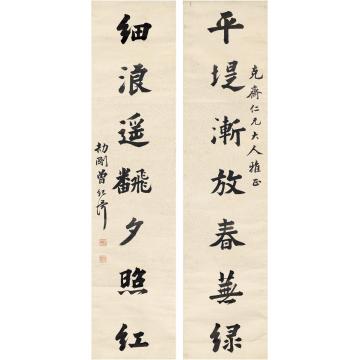 平堤漸放春蕪绿
克齋仁兄大人雅正
細浪遥飜夕照紅
劼剛曾紀澤